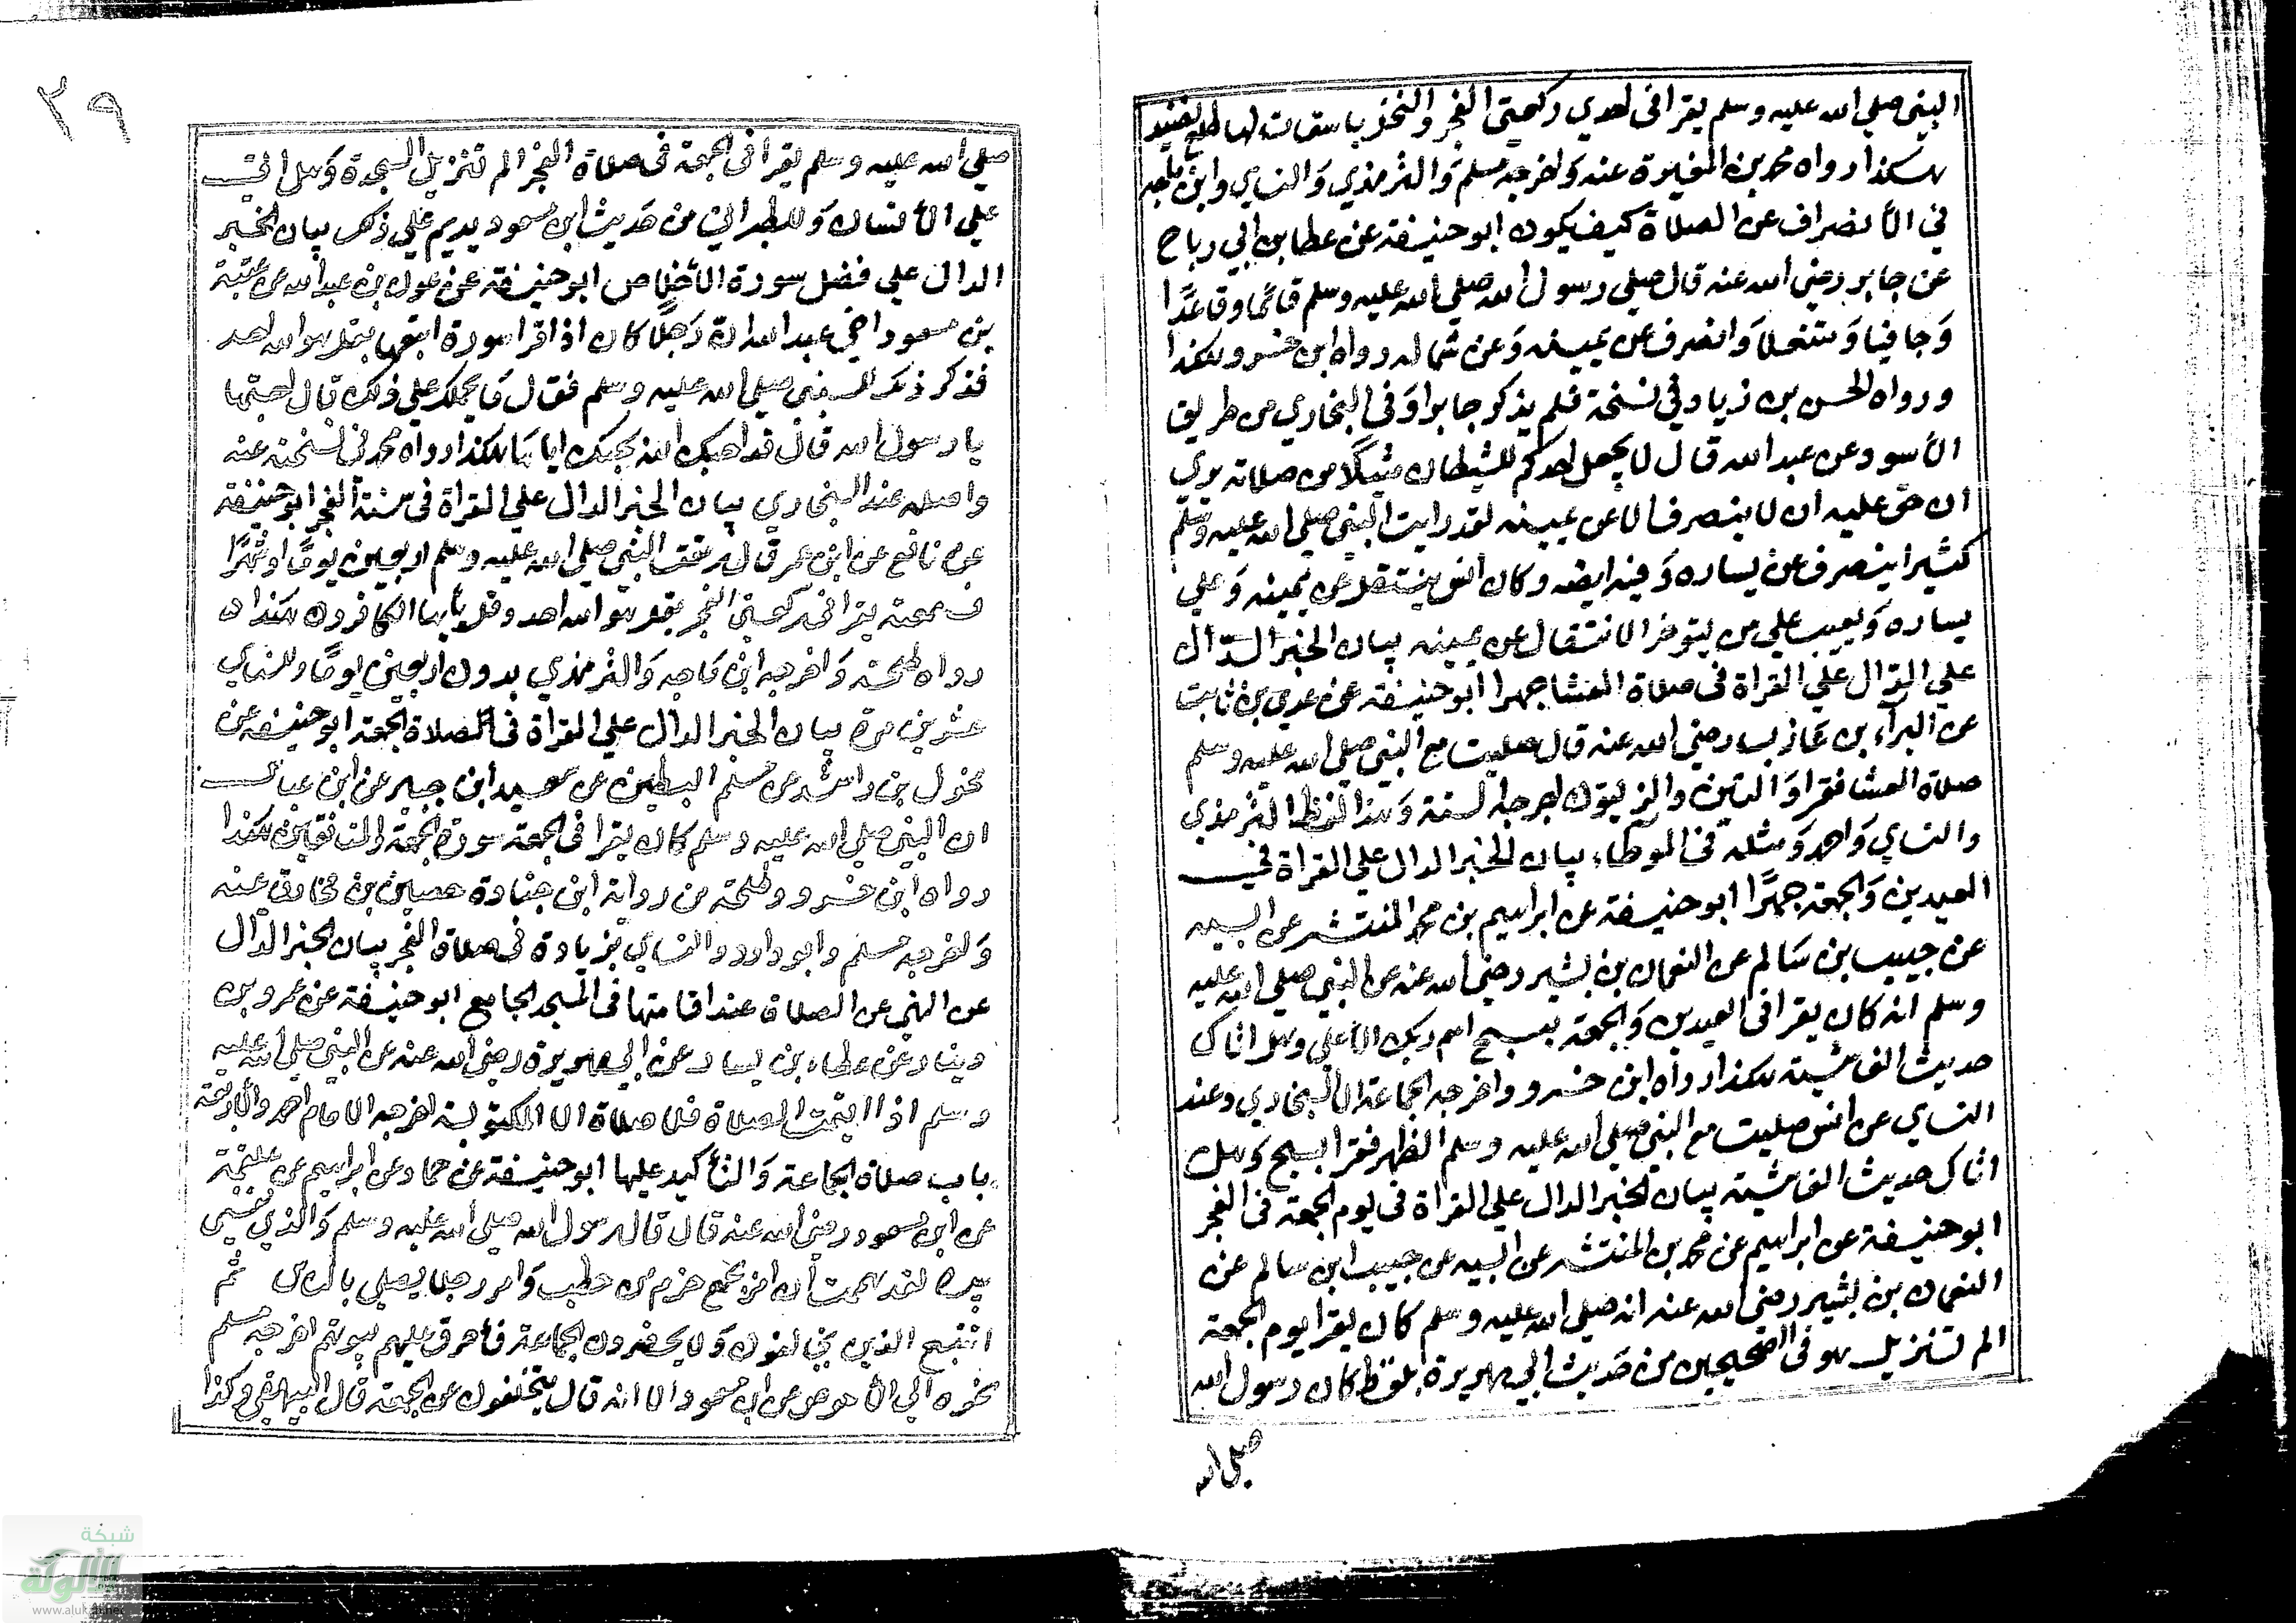 النبي صلي الله عليه وسلم يقرا في احدي ركعتي الفجر والنخل باسقات لها طلع نضيد
هكذا رواه محمد بن المغيرة عنه واخرجه مسلم والترمذي والنساي وابن ماجه
في الانصراف عن الصلاة كيف يكون ابو حنيفة عن عطا بن ابي رباح
عن جابر رضي الله عنه قال صلي رسول الله صلي الله عليه وسلم قائما وقاعدًا
وَحافيا وَمنتعلا وَانصرف عن يمينه وَعن شماله رواه ابن خسرو هكذا
ورواه الحسن بن زياد في نسخة فلم يذكر جابرا وَفي البخاري من طريق
الاسود عن عبد الله قال لا يجعل احدكم للشيطان شيًا من صلاته يري
ان حق عليه ان لا ينصرف الا عن يمينه لقد رايت النبي صلي الله عليه وسلم
كثيرا ينصرف عن يساره وَفيه ايضا وكان انس ينتقل عن يمينه وَعلي
يساره وَيعيب علي من يتوخا الانتقال عن يمينه بيان الخبر الدّال
علي الدّال علي القراة في صلاة العشا جهرا ابو حنيفة عن عدي بن ثابت
عن البراء بن عَازب رضي الله عنه قال صليت مع النبي صلي الله عليه وسلم
صلاة العشا فقرا وَالتين والزيتون اخرجه الستة وَهذا لفظ الترمذي
والنساي وَاحمد وَمثله في الموطاء بيان الخبر الدال علي القراة في
العيدين وَالجمعة جهرًا ابو حنيفة عن ابراهيم بن محمد المنتشر عن ابيه
عن حبيب بن سَالم عن النعمان بن بشير رضي الله عنه عن النبي صلي الله عليه
وسلم انه كان يقرا في العيدين وَالجمعة بسبح اسم ربك الاعلي وهل اتاك
حديث الغاشية هكذا رواه ابن خسرو واخرجه الجماعة الا البخاري وعند
النساي عن انس صليت مع النبي صلي الله عليه وسلم الظهر فقرا بسبح وَهل
اتاك حديث الغاشية بيان الخبر الدال علي القراة في يوم الجمعة في الفجر
ابو حنيفة عن ابراهيم عن محمد بن المنتشر عن ابيه عن حبيب ابن سالم عن
النعمان بن بشير رضي الله عنه انه صلي الله عليه وسلم كان يقرا يوم الجمعة
الم تنزيل هو في الصحيحين من حَديث ابي هريرة بلفظ كان رسول الله
صلي الله
٢٩
صلي الله عليه وسلم يقرا في الجمعة في صلاة الفجر الم تنزيل السجدة وَهل اتي
علي الانسان وَللطبراني من حَديث ابن مسعود يديم علي ذلك بيان الخبر
الدال علي فضل سورة الاخلاص ابو حنيفة عن عون بن عبد الله عن عتبة
بن مسعود اخي عبد الله ان رَجلًا كان اذا قرا سورة اتبعها بقل هو الله احد
فذكر ذلك للنبي صلي الله عليه وسلم فقال مَا يحملك علي ذلك قال احبها
يا رسول الله قال قد احبك الله بحبك اياهَا هكذا رواه محمد في نسخته عنه
واصله عند البخاري بيان الخبر الدال علي القراة في سنة الفجر ابو حنيفة
عن نافع عن ابن عمر قال رمقت النبي صلي الله عليه وسلم اربعين يومًا او شهرًا
فسمعته يقرا في ركعتي الفجر بقل هو الله احد وقل يأيها الكافرون هكذا
رواه طلحة وَاخرجه ابن مَاجه وَالترمذي بدون اربعين يومًا وللنساي
عشرين مرة بيان الخبر الدال علي القراة في الصلاة الجمعة ابو حنيفة عن
مخول بن راشد عن مسلم البطين عن سعيد ابن جبير عن ابن عباس
ان النبي صلي الله عليه وسلم كان يقرا في الجمعة سورة الجمعة والمنافقين هكذا
رواه ابن خسرو وطلحة من رواية ابن جنادة حصين بن مخارق عنه
وَاخرجه مسلم وابو داود والنساي بزيادة في صلاة الفجر بيان الخبر الدال
عن النهي عن الصلاة عند اقامتها في المسجد الجامع ابو حنيفة عن عمرو بن
دينار عن عطاء بن يسار عن ابي هريرة رضي الله عنه عن النبي صلي الله عليه
وسلم اذا اقيمت الصلاة فلا صلاة الا المكتوبة اخرجه الامام احمد والاربعة
باب صلاة الجماعة وَالتأكيد عليها ابو حنيفة عن حماد عن ابراهيم عن علقمة
عن ابن مسعود رضي الله عنه قال قال رسول الله صلي الله عليه وسلم وَالذي نفسي
بيده لقد هممت ان امر بجمع حزم من حطب وَامر رجلا يصلي بالناس ثم
اتتبع الذين يخالفون وَلا يحضرون الجماعة فأحرق عليهم بيوتهم اخرجه مسلم
نحوه ابي الاحوص عن ابن مسعود الا انه قال يتخلفون عن الجمعة قال البيهقي وكذا
شبكة
الألوكة
www.alukah.net